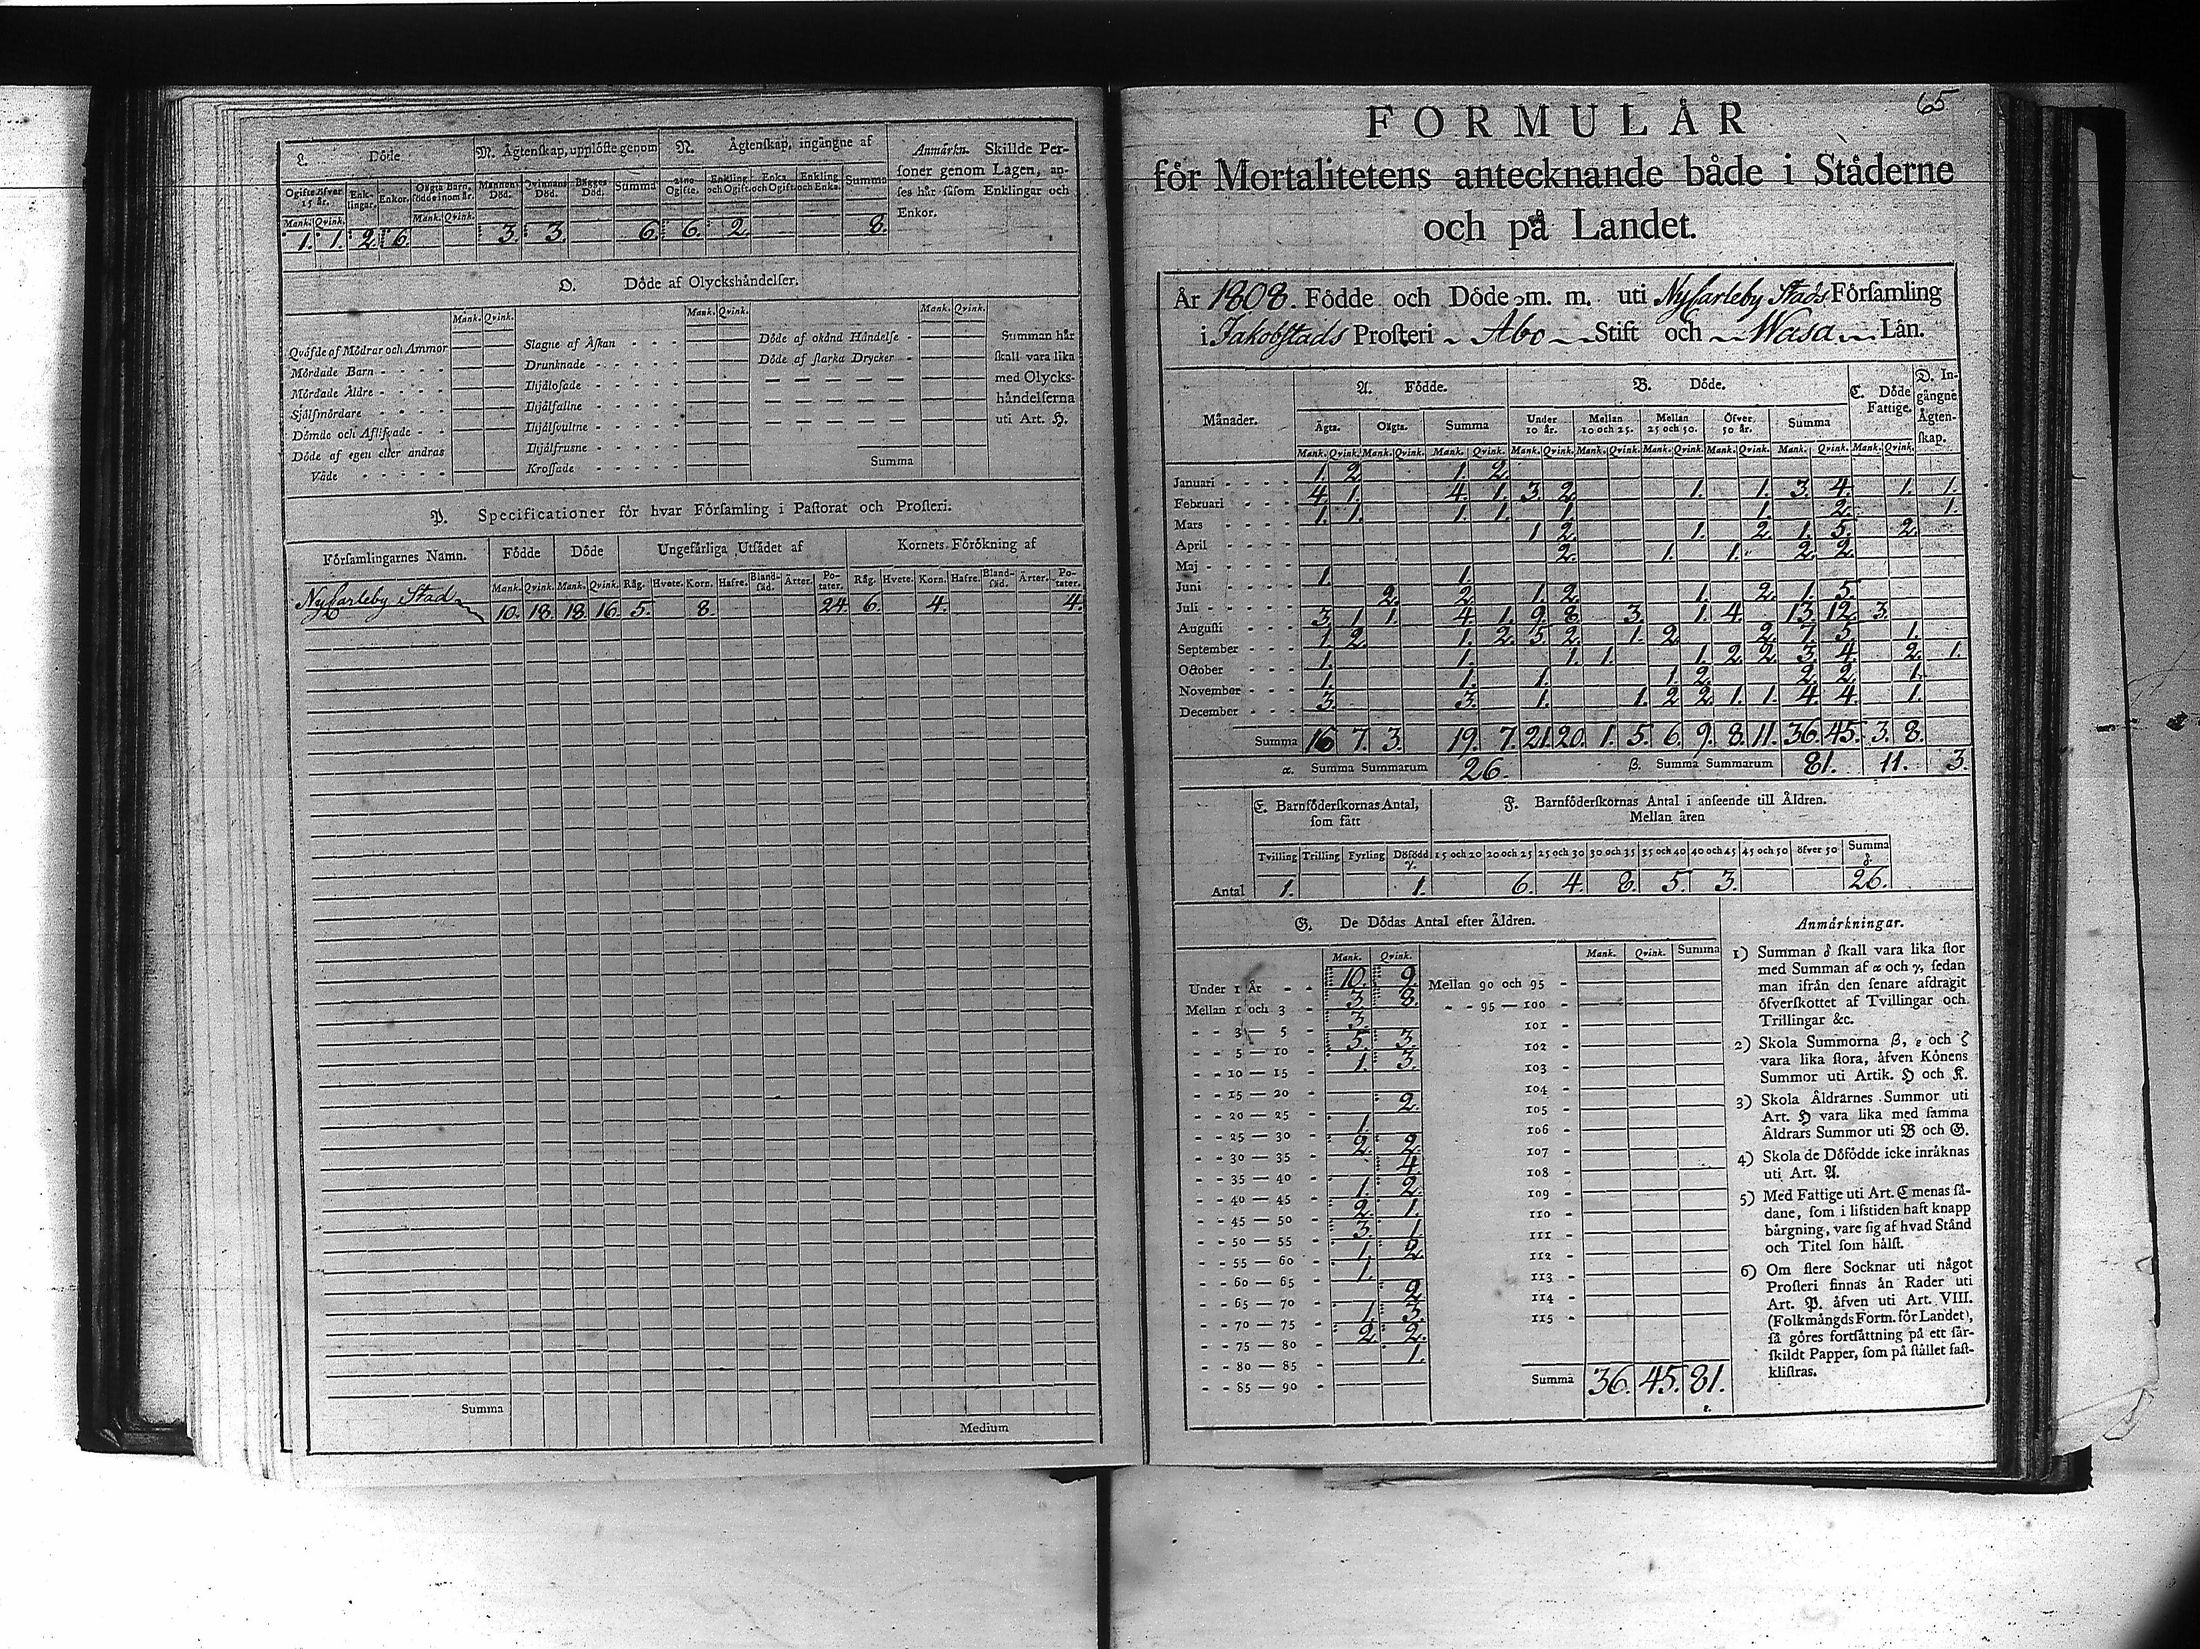 L. Döde
M. Ägtenskap, upplöste genom
N. Ägtenskap, ingångne af
Anmärkn. Skillde Personer
genom Lagen, anses
här såsom Enklingar och
Enkor.
Ogifte öfver 15 år. Enklingar. Enkor. Oägta Barn, födde inom år. Mannens Död. Qvinnans Död. Bägges Död. Summa Ogifte. Enkling och Ogift. Enka och Ogift. Enkling och Enka. Summa
Mank. Qvink. Mank. Qvink.
1. 1. 2. 6. 3. 3. 6. 6. 2. 8.
O. Döde af Olyckshändelser.
Mank. Qvink. Mank. Qvink. Mank. Qvink.
Qväfde af Mödrar och Ammor
Mördade Barn - - - -
Mördade Äldre - - - -
Sjålfmördare - - - -
Dömde och Aflifvade - -
Döde af egen eller andras
Våde - - - - -
Slagne af Åskan - - -
Drunknade - - - - -
Ihjälosade - - - - -
Ihjälfallne - - - - -
Ihjälsvultne - - - -
Ihjälfrusne - - - -
Krossade - - - - -
Döde af okänd Händelse -
Döde af starka Drycker -
Summa
Summan här
skall vara lika
med Olycks-
händelserna
uti Art. H.
P. Specificationer för hvar Församling i Pastorat och Prosteri.
Församlingarnes Namn. Födde Döde Ungefärliga Utsädet af Kornets Förökning af
Mank. Qvink. Mank. Qvink. Råg. Hvete. Korn. Hafre. Bland-säd. Ärter. Po-tater. Råg. Hvete. Korn. Hafre. Bland-säd. Ärter. Po-tater.
NyCarleby Stad 10. 18. 18. 16. 5. 8. 24. 6. 4. 4.
Summa
Medium
65
FORMULÄR
för Mortalitetens antecknande både i Städerne
och på Landet.
År 1808. Födde och Döde m. m. uti NyCarleby Stads Församling
i Jakobstads Prosteri Åbo Stift och Wasa Län.
Månader. A. Födde. B. Döde. C. Döde Fattige. D. Ingångne Ägtenskap.
Ägta. Oägta. Summa Under 10 år. Mellan 10 och 25. Mellan 25 och 50. Öfver 50 år. Summa
Mank. Qvink. Mank. Qvink. Mank. Qvink. Mank. Qvink. Mank. Qvink. Mank. Qvink. Mank. Qvink. Mank. Qvink. Mank. Qvink.
Januari - - - - 1. 2. 1. 2.
Februari - - - 4. 1. 4. 1. 3. 2. 1. 1. 3. 4. 1. 1.
Mars - - - - 1. 1. 1. 1. 1. 1. 2. 1.
April - - - - 1. 2. 1. 2. 1. 5. 2.
Maj - - - - - 2. 1. 1. 2. 2.
Juni - - - - 1. 1.
Juli - - - - 2. 2. 1. 2. 1. 2. 1. 5.
Augusti - - - 3. 1. 1. 4. 1. 9. 8. 3. 1. 4. 13. 12. 3.
September - - - 1. 2. 1. 2. 5. 2. 1. 2. 2. 7. 5. 1.
October - - - 1. 1. 1. 1. 1. 2. 2. 3. 4. 2. 1.
November - - - 1. 1. 1. 1. 2. 2. 2. 1.
December - - - 3. 3. 1. 1. 2. 2. 1. 1. 4. 4. 1.
Summa 16 7. 3. 19. 7. 21. 20. 1. 5. 6. 9. 8. 11. 36. 45. 3. 8.
α. Summa Summarum 26. β. Summa Summarum 81. 11. 3.
E. Barnföderskornas Antal,
som fått
F. Barnföderskornas Antal i anseende till Åldren.
Mellan åren
Tvilling Trilling Fyrling Dödfödd γ. 15 och 20 20 och 25 25 och 30 30 och 35 35 och 40 40 och 45 45 och 50 öfver 50 Summa δ.
Antal 1. 1. 6. 4. 8. 5. 3. 26.
G. De Dödas Antal efter Åldren.
Mank. Qvink. Mank. Qvink. Summa
Under 1 År - - 10. 9.
Mellan 1 och 3 - 3. 8.
- - 3 — 5 - 3.
- - 5 — 10 - 5. 3.
- - 10 — 15 - 1. 3.
- - 15 — 20 -
- - 20 — 25 - 2.
- - 25 — 30 - 1.
- - 30 — 35 - 2. 2.
- - 35 — 40 - 4.
- - 40 — 45 - 1. 2.
- - 45 — 50 - 2. 1.
- - 50 — 55 - 3. 1.
- - 55 — 60 - 1. 2.
- - 60 — 65 - 1.
- - 65 — 70 - 2.
- - 70 — 75 - 1. 3.
- - 75 — 80 - 2. 2.
- - 80 — 85 - 1.
- - 85 — 90 -
Mellan 90 och 95 -
- - 95 — 100 -
101 -
102 -
103 -
104 -
105 -
106 -
107 -
108 -
109 -
110 -
111 -
112 -
113 -
114 -
115 -
Summa 36. 45. 81.
ε.
Anmärkningar.
1) Summan δ skall vara lika stor
med Summan af α och γ, sedan
man ifrån den senare afdragit
öfverskottet af Tvillingar och
Trillingar &c.
2) Skola Summorna β, ε och ζ
vara lika stora, äfven Könens
Summor uti Artik. H och K.
3) Skola Åldrarnes Summor uti
Art. H vara lika med samma
Åldrars Summor uti B och G.
4) Skola de Döfödde icke inräknas
uti Art. A.
5) Med Fattige uti Art. C menas så-
dane, som i lifstiden haft knapp
bärgning, vare sig af hvad Stånd
och Titel som hälst.
6) Om flere Socknar uti något
Prosteri finnas än Rader uti
Art. P. äfven uti Art. VIII.
(Folkmängds Form. för Landet),
så göres fortsättning på ett sär-
skildt Papper, som på stället fast-
klistras.